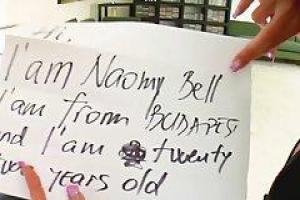 Hi.
I'am Naomy Bell
I'am from BUDAPEST
and I'am twenty
years old